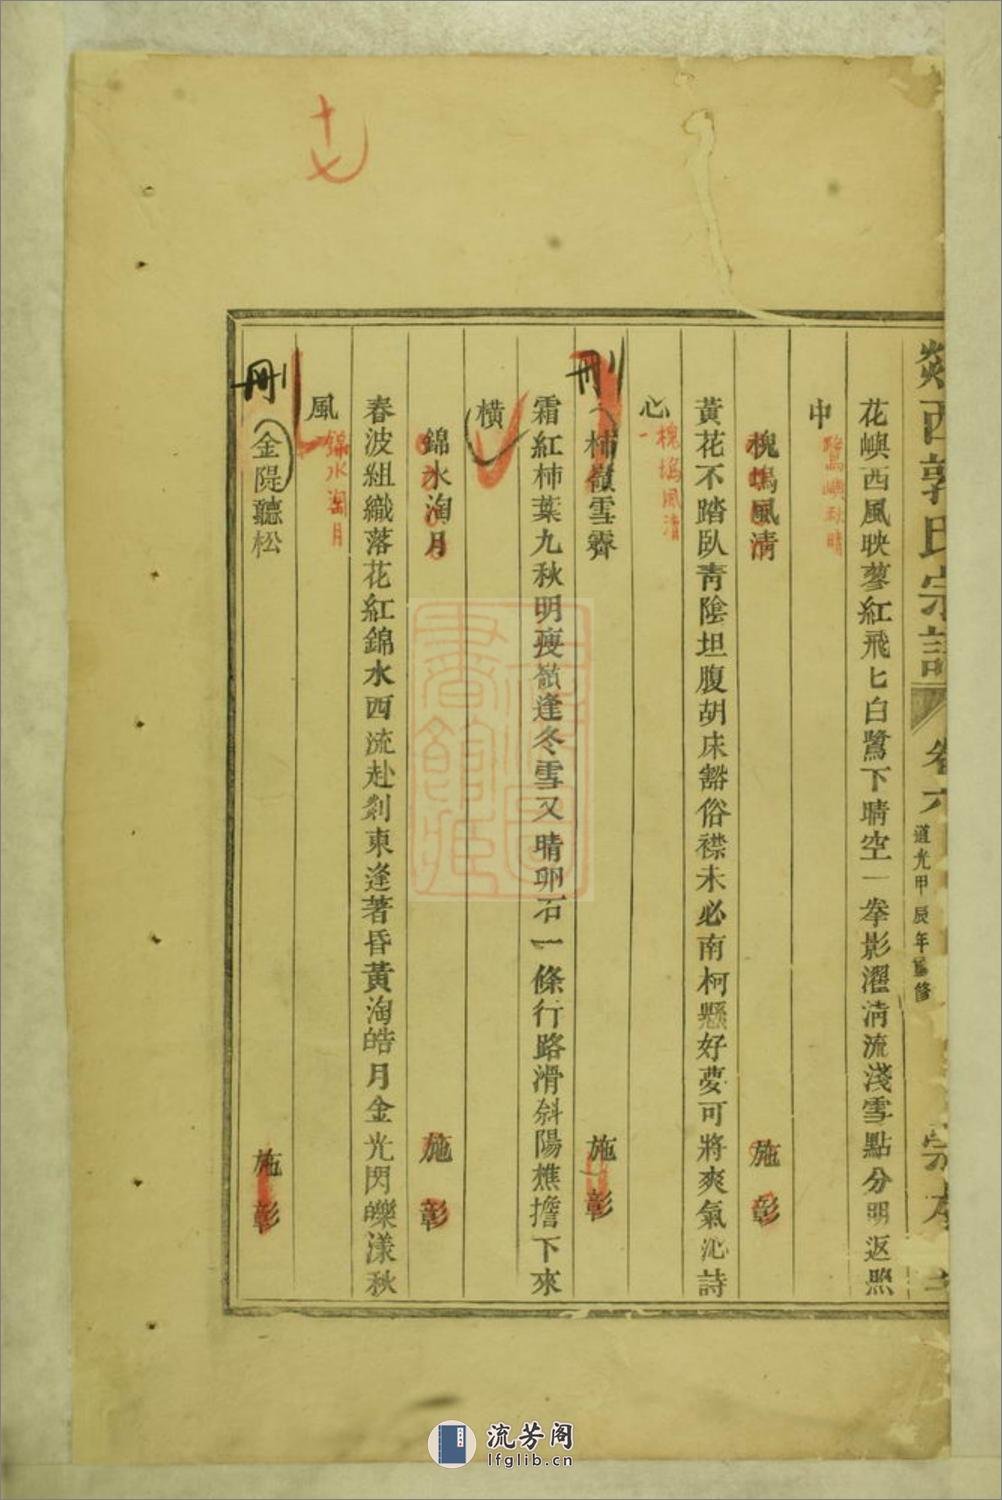 十七
剡西郭氏宗譜
卷六
道光甲辰年重修
花嶼西風映蓼紅飛匕白鷺下晴空一拳影濯清流淺雪點分明返照
中
鷺嶼秋晴
槐塢風清
施彰
黃花不踏臥青陰坦腹胡床豁俗襟未必南柯縣好夢可將爽氣沁詩
心
槐塢風清
刪
柿嶺雪霽
施彰
霜紅柿葉九秋明瘦嶺逢冬雪又晴卵石一條行路滑斜陽樵擔下來
橫
錦水淘月
施彰
春波組織落花紅錦水西流赴剡東逢著昏黃淘皓月金光閃皪漾秋
風
錦水淘月
刪
金隄聽松
施彰
流芳阁
lfglib.cn